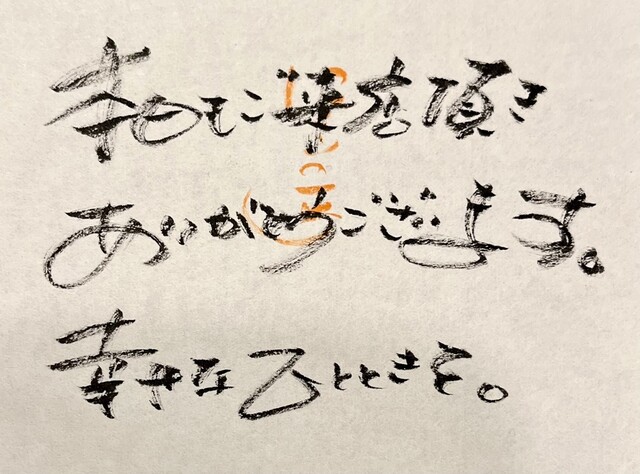 本日もご来店頂き
ありがとうございます。
幸せなひとときを。